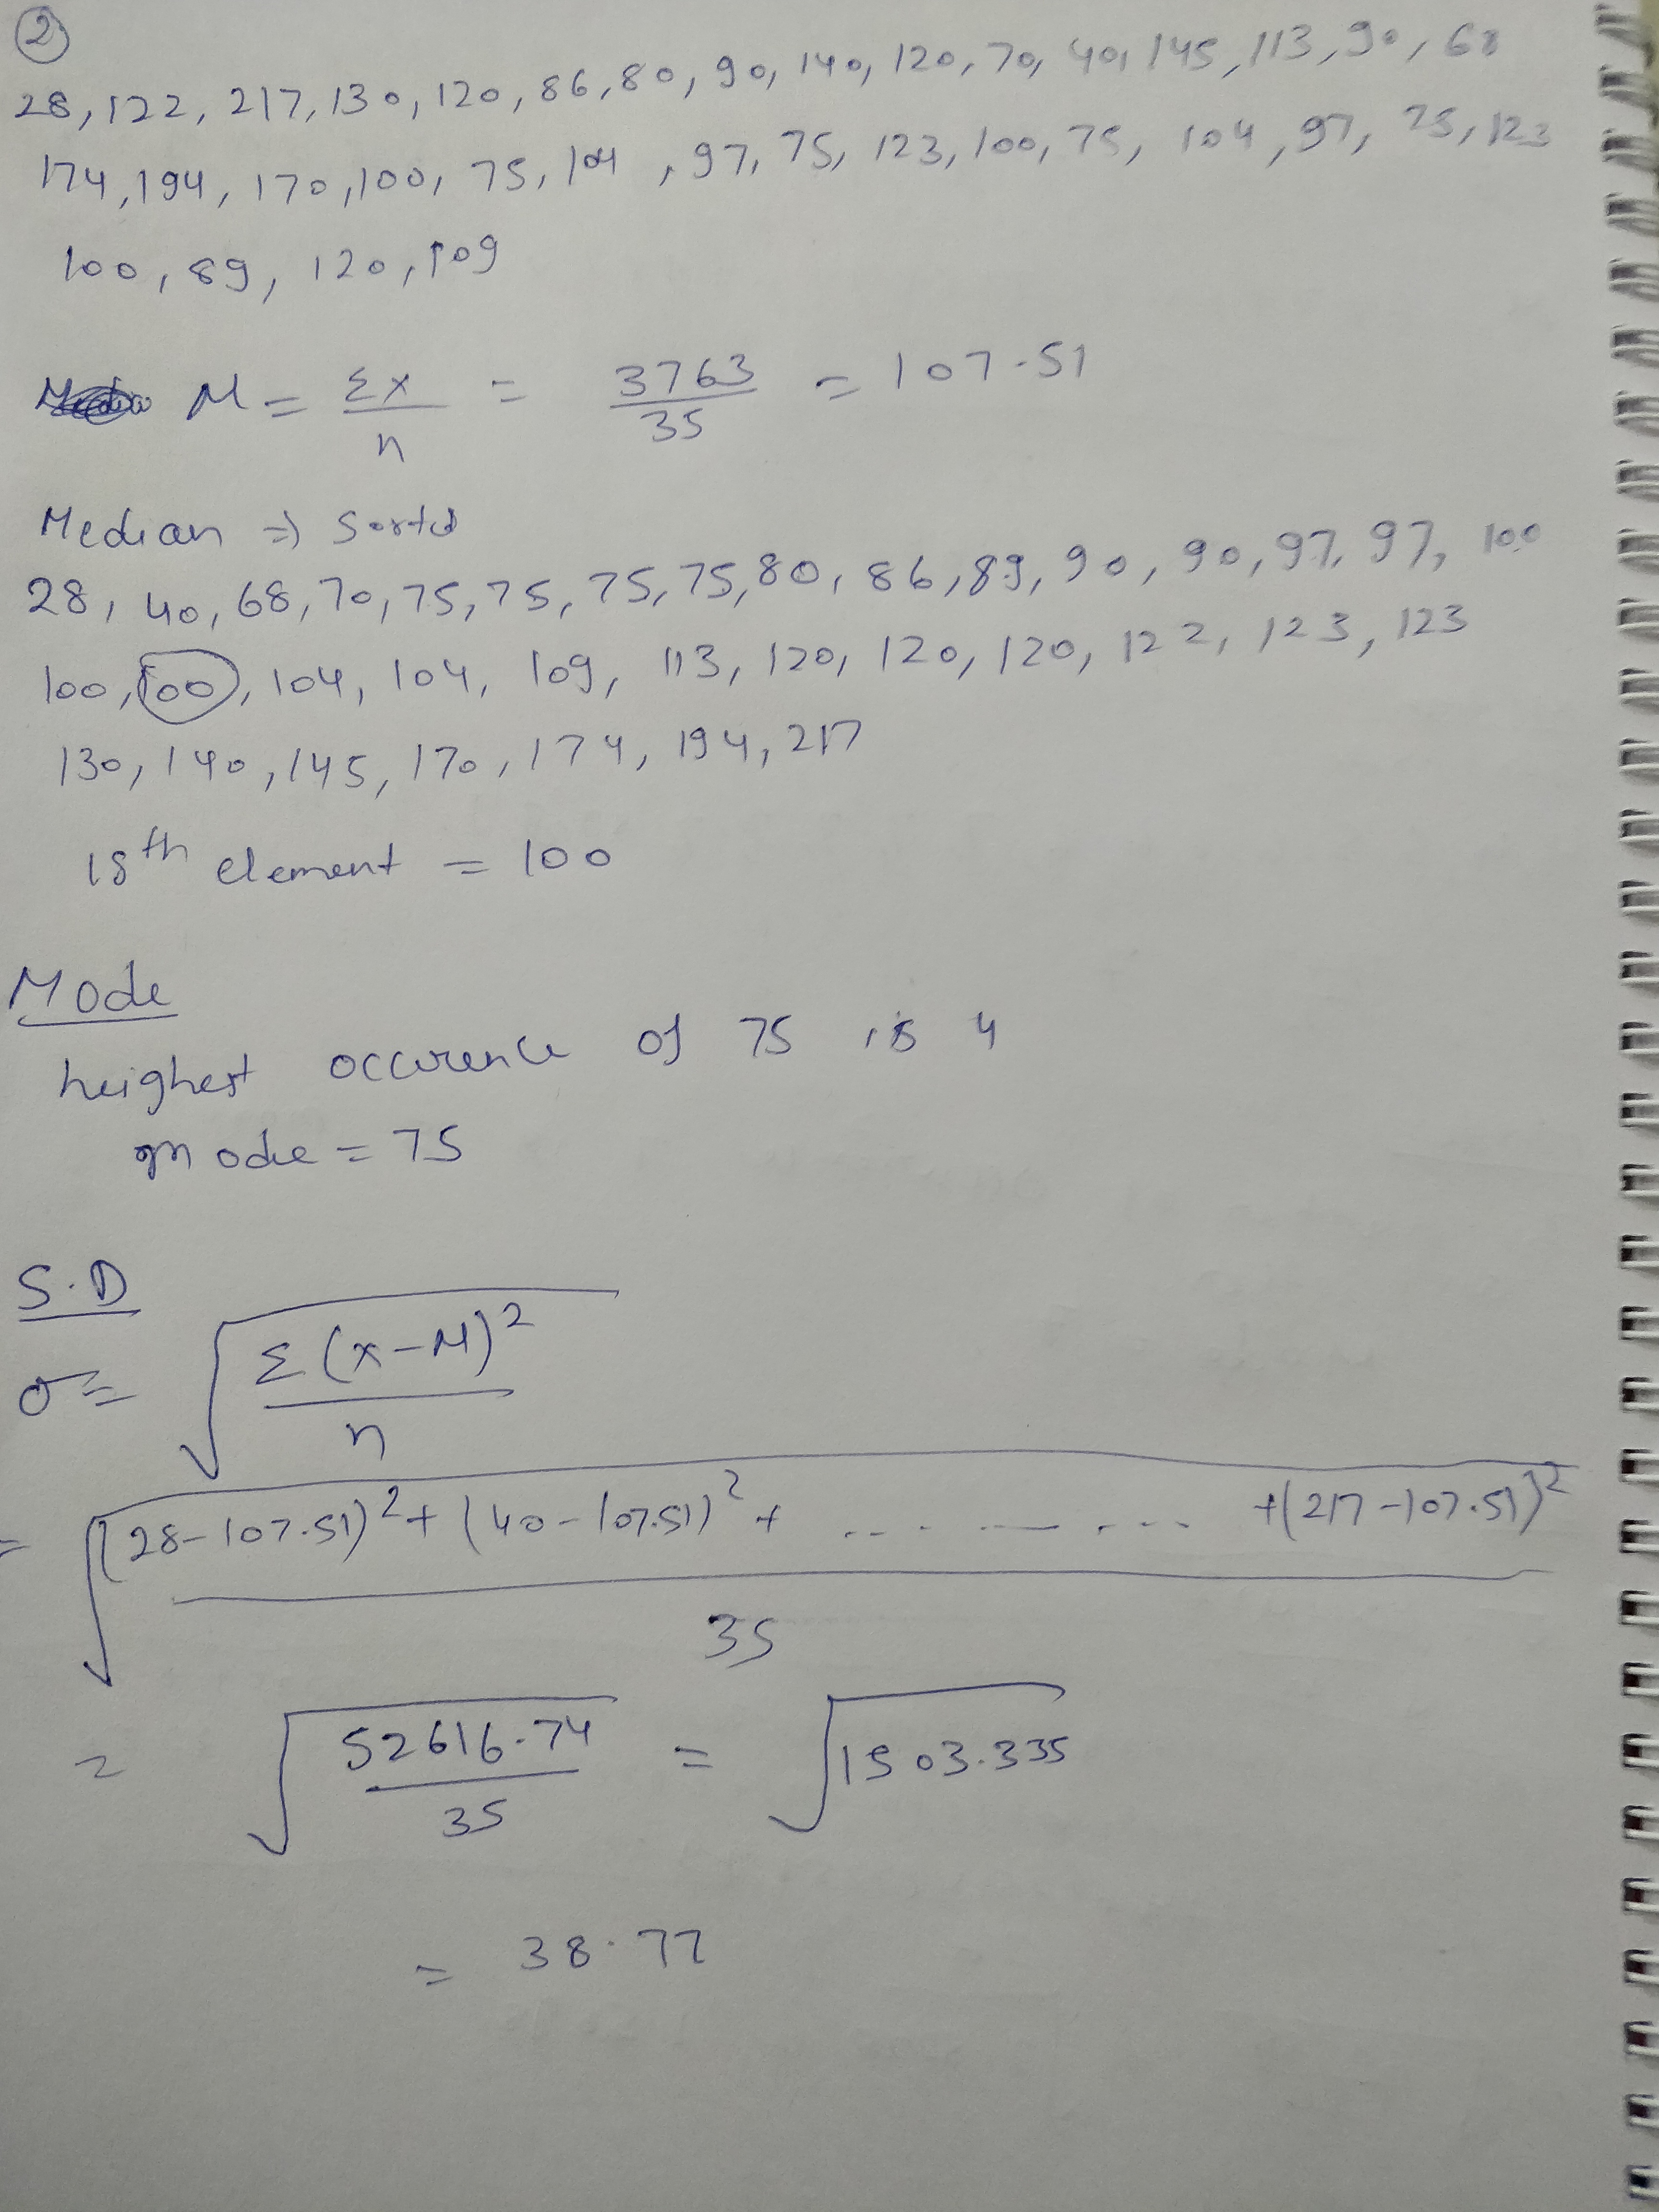 2
28, 122, 217, 130, 120, 86, 80, 90, 140, 120, 70, 40, 145, 113, 90, 68
174, 194, 170, 100, 75, 104, 97, 75, 123, 100, 75, 104, 97, 75, 123
100, 89, 120, 109
M = Σx / n = 3763 / 35 = 107.51
Median ⇒ Sorted
28, 40, 68, 70, 75, 75, 75, 75, 80, 86, 89, 90, 90, 97, 97, 100
100, 100, 104, 104, 109, 113, 120, 120, 120, 122, 123, 123
130, 140, 145, 170, 174, 194, 217
18th element = 100
Mode
heighest occurence of 75 is 4
mode = 75
S.D
σ = √(Σ(x-M)² / n)
= √((28-107.51)² + (40-107.51)² + ......... +(217-107.51)² / 35)
= √(52616.74 / 35) = √1503.335
= 38.77